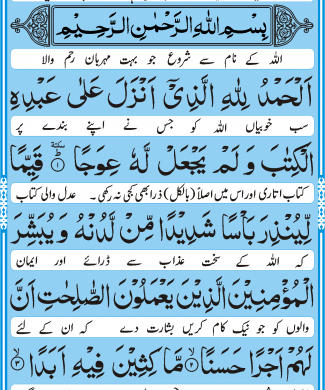 بِسْمِ اللهِ الرَّحْمٰنِ الرَّحِيْمِ
اللہ کے نام سے شروع جو بہت مہربان رحم والا
اَلْحَمْدُ لِلّٰهِ الَّذِيْۤ اَنْزَلَ عَلٰى عَبْدِهِ
سب خوبیاں اللہ کو جس نے اپنے بندے پر
الْكِتٰبَ وَ لَمْ يَجْعَلْ لَّهٗ عِوَجًا ﴿١﴾ قَيِّمًا
کتاب اتاری اور اس میں اصلاً (بالکل) ذرا بھی کجی نہ رکھی۔ عدل والی کتاب
لِّيُنْذِرَ بَاْسًا شَدِيْدًا مِّنْ لَّدُنْهُ وَ يُبَشِّرَ
کہ اللہ کے سخت عذاب سے ڈرائے اور ایمان
الْمُؤْمِنِيْنَ الَّذِيْنَ يَعْمَلُوْنَ الصّٰلِحٰتِ اَنَّ
والوں کو جو نیک کام کریں بشارت دے کہ ان کے لئے
لَهُمْ اَجْرًا حَسَنًا ﴿٢﴾ مَّاكِثِيْنَ فِيْهِ اَبَدًا ﴿٣﴾